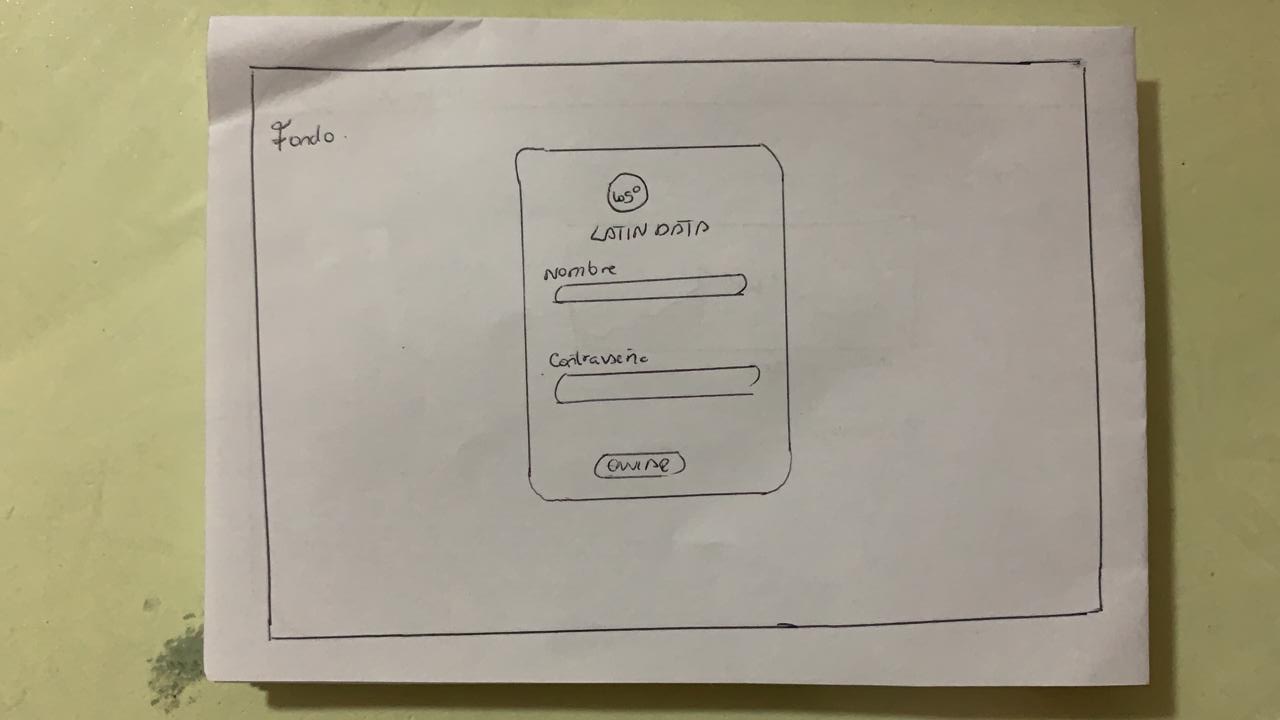 Fondo.
LATIN DATA
Nombre
Contraseña
ENVIAR